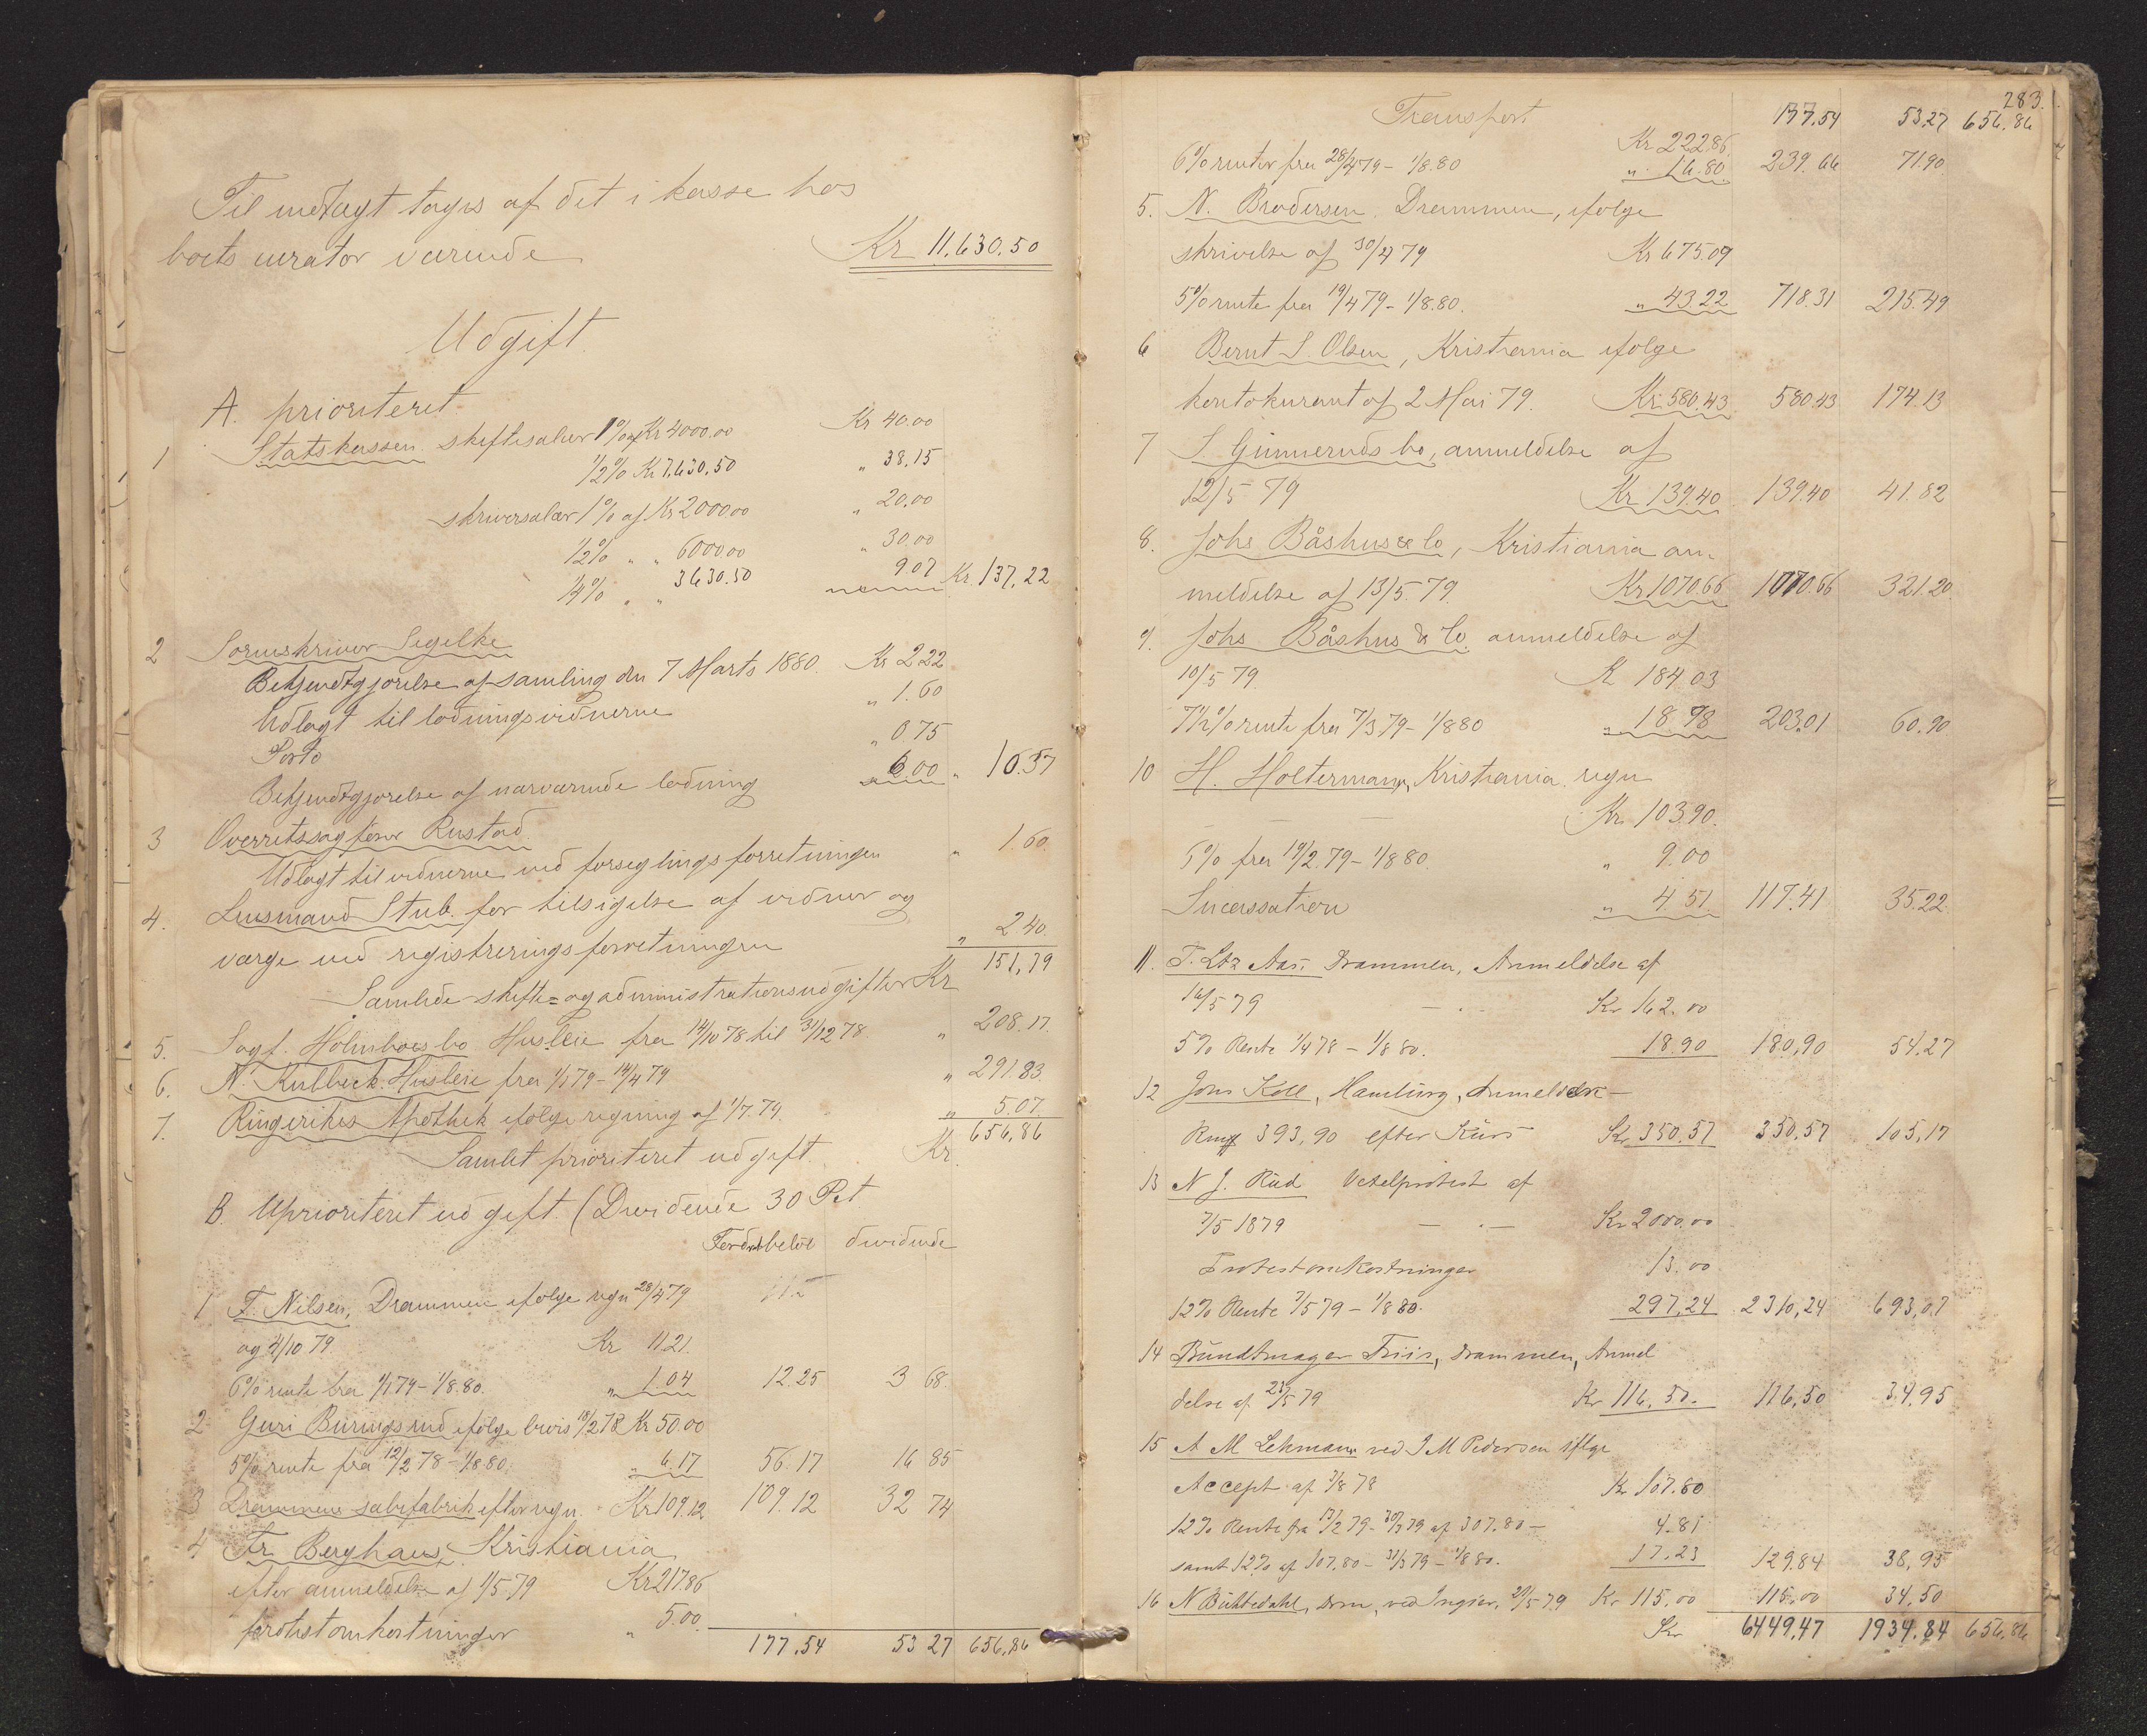 Til indtægt tages af det i kasse hos
boets curator værende Kr 11.630.50
Udgift
A. prioriteret
1 Statskassen. skiftesalær 1% af Kr 4000.00 Kr 40.00
1/2% Kr 7.630.50 " 38.15
skriversalær 1% af Kr 2000.00 " 20.00
1/2% " " 6000.00 " 30.00
1/4% " " 3630.50 9.07 Kr. 137,22
2 Sorenskriver Segelke
Bekjendtgjørelse af samling den 7 Marts 1880. Kr 2.22
Udlagt til lodningsvidnerne " 1.60
Porto " 0.75
Bekjendtgjørelse af nærværende lodning " 6.00 " 10.57
3 Overretssagfører Rustad.
Udlagt til vidnerne ved forseglingsforretningen " 1.60
4. Lensmand Stub. for tilsigelse af vidner og
værge ved registreringsforretningen " 2.40
Samlede skifte= og administrationsudgifter Kr 151,79
5. Sagf. Holmboes bo Husleie fra 14/10 78 til 31/12 78 " 208.17.
6. N. Kulbeck. Husleie fra 1/1 79 - 14/4 79 " 291.83.
7. Ringerikes Apothek ifølge regning af 1/7.79. " 5.07.
Samlet prioriteret udgift Kr. 656,86
B. Uprioriteret udgift. (Dividende 30 Pct.
Fordr.beløb dividende
1 F. Nilsen, Drammen ifølge regn 28/4 79
og 4/10 79 Kr 11.21.
6% rente fra 1/1 79 - 1/8.80. " 1.04 12.25 3 68
2 Guri Buringsrud ifølge bevis 18/2 78 Kr 50.00
5% rente fra 12/2 78 - 1/8 80. " 6.17 56.17 16 85
3 Drammens sæbefabrik efter regn. Kr 109.12 109.12 32 74
4 Fr. Berghaus, Kristiania
efter anmeldelse af 1/5 79 Kr 217.86
protestomkostninger " 5.00.
177.54 53 27 656,86
283.
Transport 177.54 53.27 656,86
Kr 222.86
6% renter fra 28/4 79 - 1/8.80 " 16.80 239.66 71.90
5. N. Brodersen. Drammen, ifølge
skrivelse af 30/4 79 Kr 675.09
5% rente fra 19/4 79 - 1/8.80. " 43.22 718.31 215.49
6 Bernt S. Olsen, Kristiania ifølge
kontokurant af 2 Mai 79. Kr 580.43 580.43 174.13
7 S. Gunneruds bo, anmeldelse af
12/5 79 Kr 139.40 139.40 41.82
8. Johs Båshus & Co, Kristiania an-
meldelse af 13/5.79. Kr 1070.66 1070.66 321.20
9. Johs. Båshus & Co. anmeldelse af
10/5 79. K 184.03
7 1/2% rente fra 7/3 79 - 1/8 80 " 18.98 203.01 60.90
10 H. Holtermann, Kristiania. regn
Kr. 103.90.
6% fra 19/2.79 - 1/8 80. " 9.00
Incassation " 4.51 117.41 35.22
11. T. Ltz Aas. Drammen, Anmeldelse af
16/5 79 Kr 162.00
5% Rente 1/4 78 - 1/8 80. 18.90 180,90 54.27
12 Johs Koll, Hamburg, Anmeldelse -
Rmf 393,90 efter Kurs Kr 350.57 350.57 105,17
13 N. J. Rud Vexelprotest af
7/5 1879 Kr 2000.00
Protestomkostninger 13.00
12% Rente 7/5 79 - 1/8 80. 297,24 2310,24 693,07
14 Bundtmager Friis, Drammen, Anmel
delse af 23/5 79 Kr 116.50. 116,50 34,95
15 A. M. Lehmann ved J M Pedersen iflge
Accept af 3/8 78 Kr 107.80
12% Rente fra 13/2 79 - 30/3 79 af 307.80 - 4.81
samt 12% af 107,80 - 31/3 79 - 1/8 80. 17.23 129.84 38,95
16 N Buttedahl, Drm, ved Ingier. 29/5 79 Kr 115.00 115.00 34,50
Kr 6449,47 1934.84 656,86